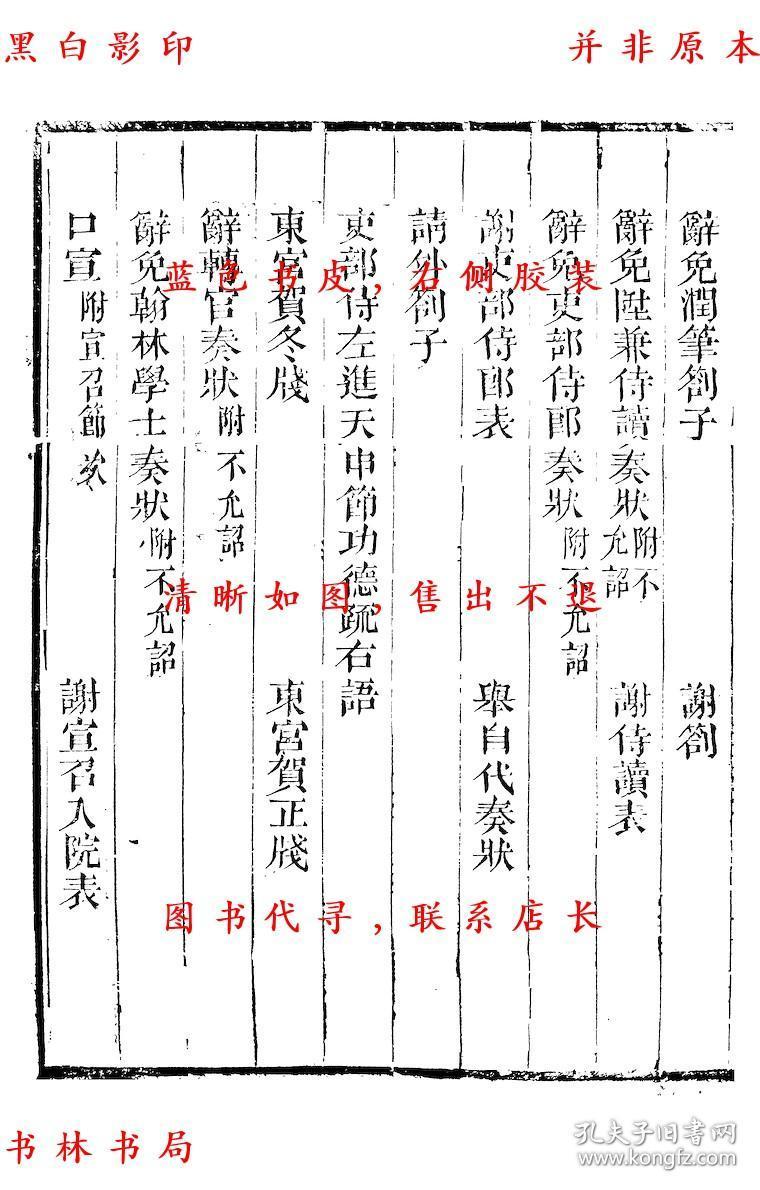 黑白影印
并非原本
辭免潤筆劄子 謝劄
辭免陞兼侍讀奏狀附不允詔 謝侍讀表
辭免吏部侍郎奏狀附不允詔
謝吏部侍郎表 舉自代奏狀
請外劄子
吏部侍左進天申節功德疏右語
東宮賀冬牋 東宮賀正牋
辭轉官奏狀附不允詔
辭免翰林學士奏狀附不允詔
口宣附宣召節次 謝宣召入院表
蓝色书皮,右侧胶装
清晰如图,售出不退
图书代寻,联系店长
书林书局
孔夫子旧书网
www.kongfz.com